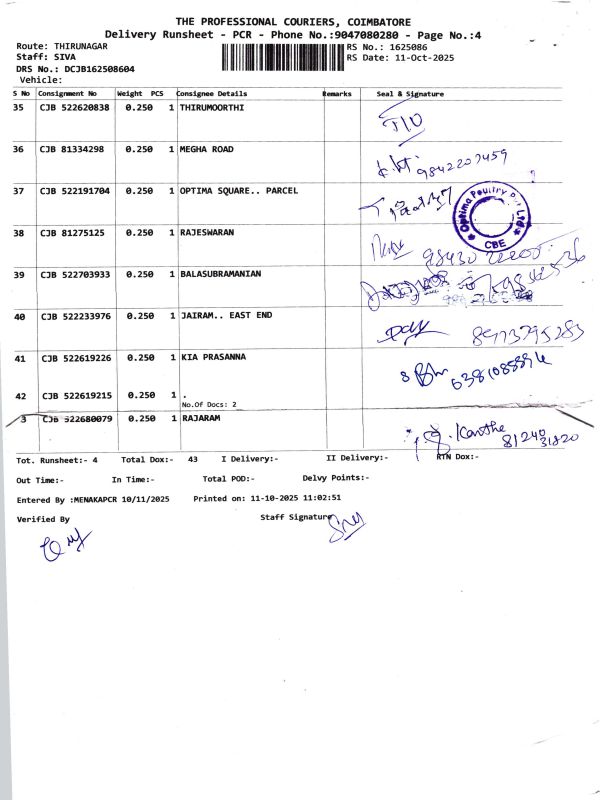 THE PROFESSIONAL COURIERS, COIMBATORE
Delivery Runsheet - PCR - Phone No.:9047080280 - Page No.:4
Route: THIRUNAGAR RS No.: 1625086
Staff: SIVA RS Date: 11-Oct-2025
DRS No.: DCJB162508604
Vehicle:
S No Consignment No Weight PCS Consignee Details Remarks Seal & Signature
35 CJB 522620838 0.250 1 THIRUMOORTHI
36 CJB 81334298 0.250 1 MEGHA ROAD
9842207459
37 CJB 522191704 0.250 1 OPTIMA SQUARE.. PARCEL
Optima Poultry Pvt Ltd
CBE
38 CJB 81275125 0.250 1 RAJESWARAN
39 CJB 522703933 0.250 1 BALASUBRAMANIAN
40 CJB 522233976 0.250 1 JAIRAM.. EAST END
8973795283
41 CJB 522619226 0.250 1 KIA PRASANNA
42 CJB 522619215 0.250 1 .
No.Of Docs: 2
3 CJB 522680079 0.250 1 RAJARAM
81240
31820
Tot. Runsheet:- 4 Total Dox:- 43 I Delivery:- II Delivery:- RTN Dox:-
Out Time:- In Time:- Total POD:- Delvy Points:-
Entered By :MENAKAPCR 10/11/2025 Printed on: 11-10-2025 11:02:51
Verified By Staff Signature